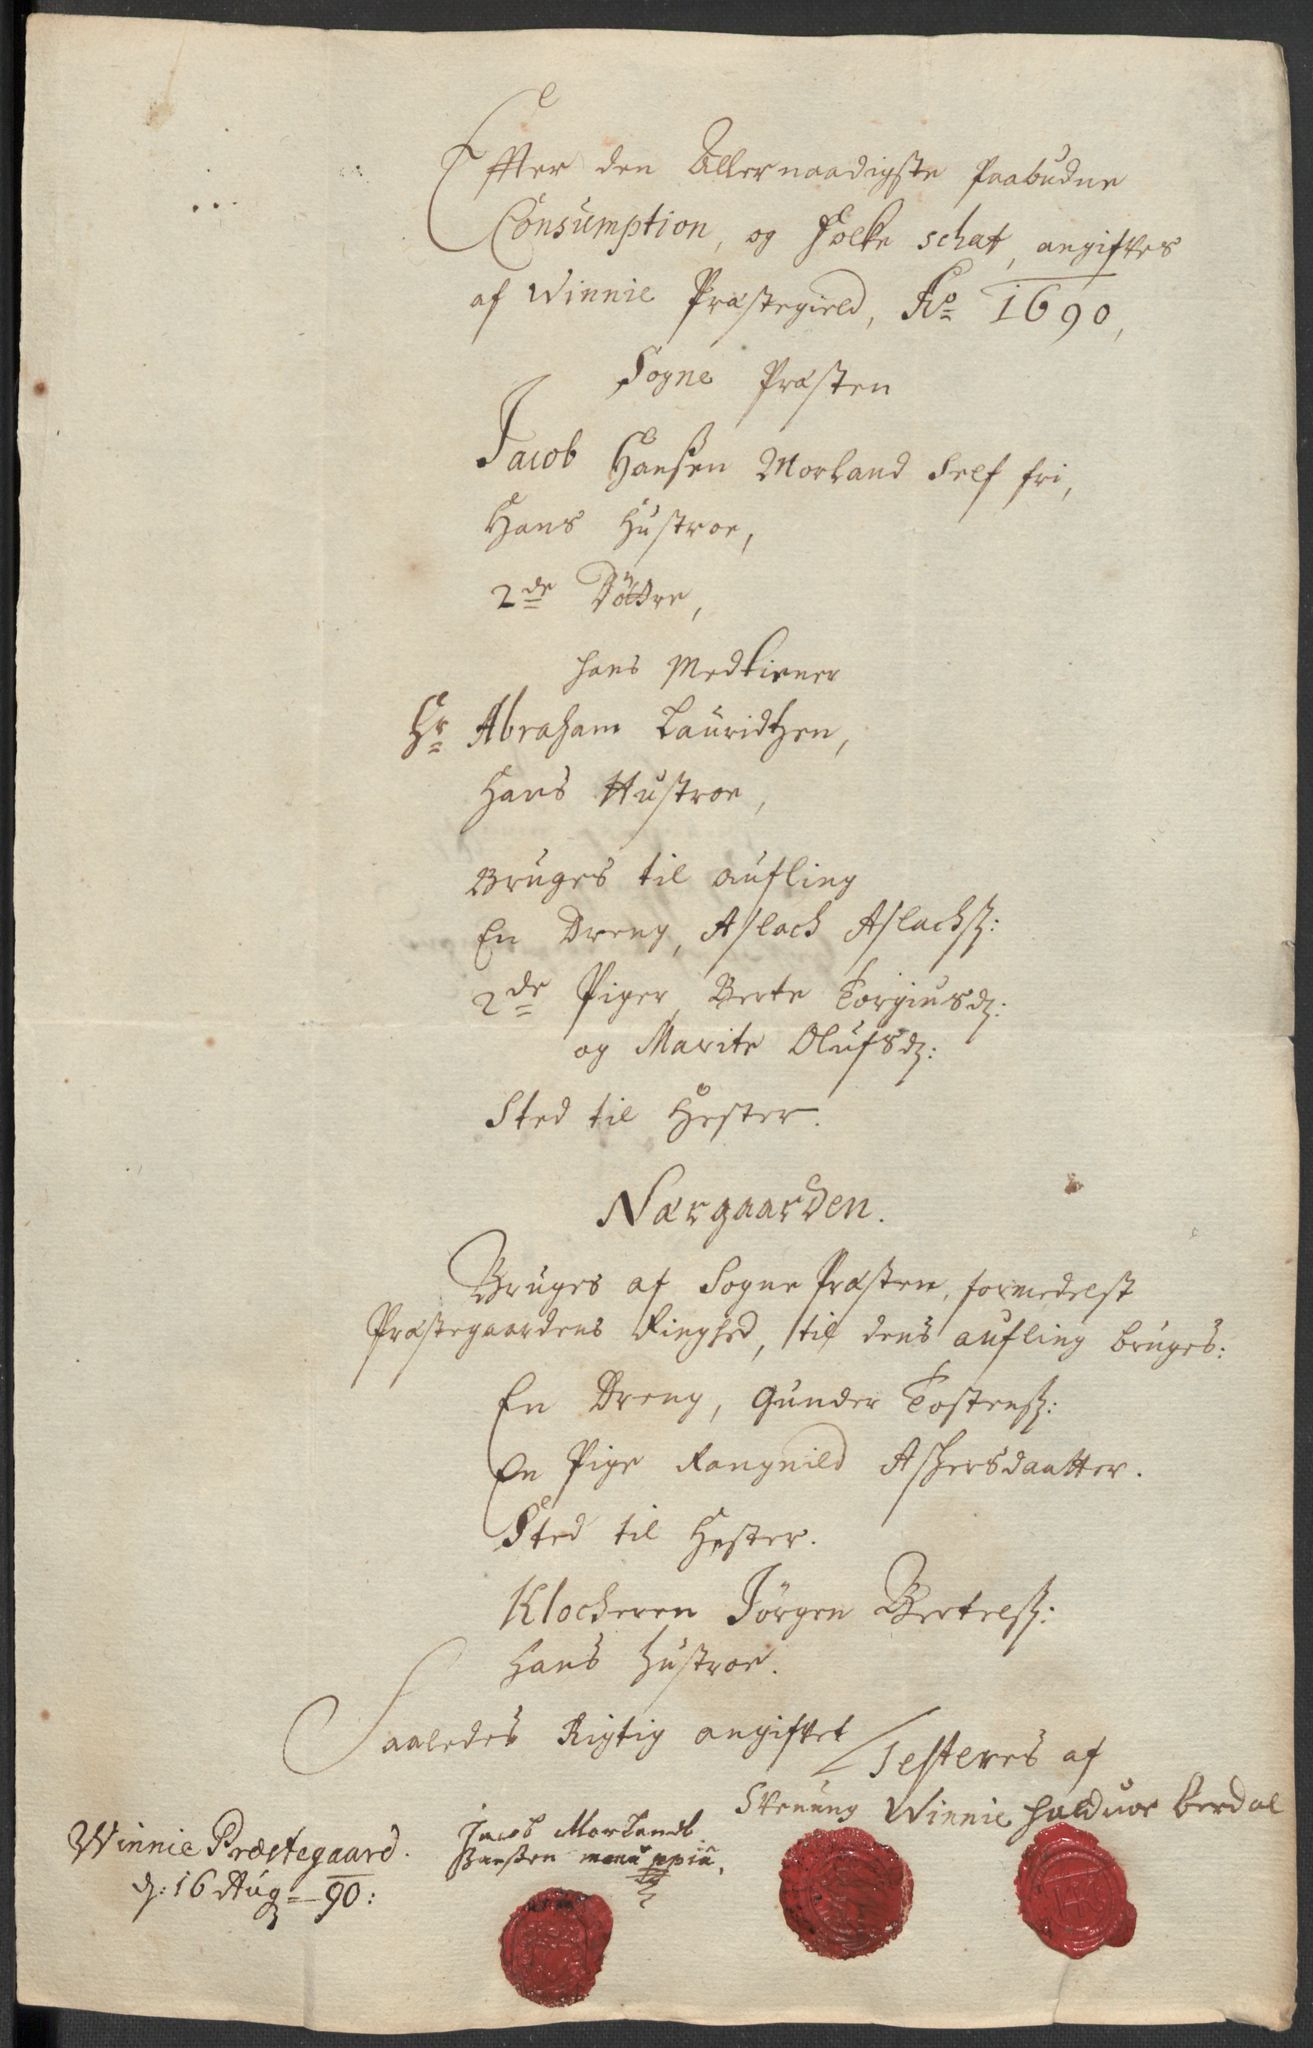 Efter den Allernaadigste Paabudne
Consumption, og Folke schat, angifves
af Winnie Præstegield, Ao 1690,
Sogne Præsten
Jacob Hanßen Morland Self fri,
Hans Hustroe,
2de Döttre,
hans Medtiener
Hr Abraham Lauridtzen,
Hans Hustroe,
Bruges til aufling
En Dreng, Aslach Aslachsz:
2de Piger, Berte Torgiusdz:
og Marite Olufsdz:
Sted til Hester.
Nærgaarden.
Bruges af Sogne Præsten, formedelst
Præstegaardens Ringhed, til dens aufling bruges:
En Dreng, Gunder Tostensz:
En Pige Rangnild Aschersdaatter.
Sted til Hester.
Klockeren Jörgen Bertelsz:
Hans Hustroe.
Saaledes Rigtig angifvet
Testeres af
Stenung Winnie Halduor Berdal
Jacob Morlandt
Hansten manu ppia.
Winnie Præstegaard.
dz: 16 Aug = 90: